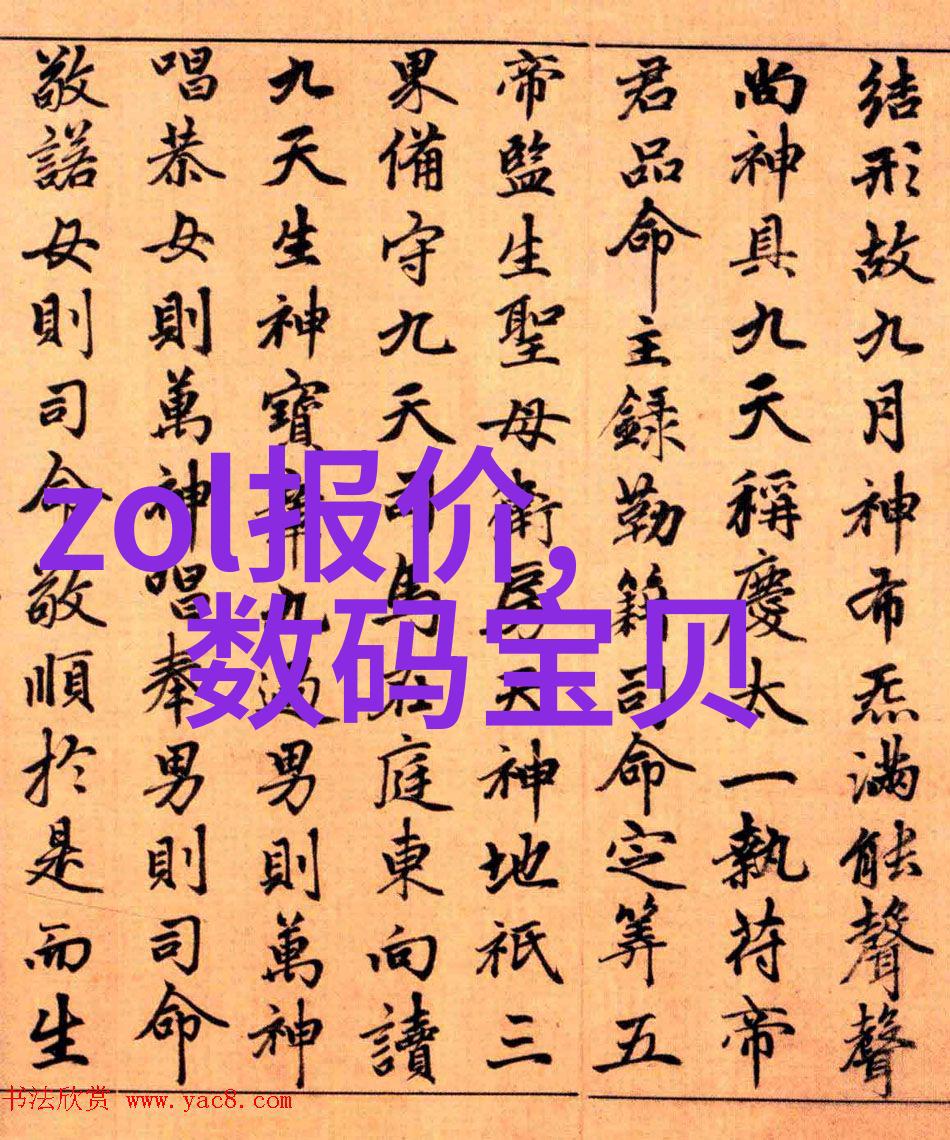 結形故九月神布炁滿能聲聲
尚神具九天稱慶太一執符帝
君品命主錄勒籍司命定筭五
帝監生聖母衛房天神地祇三
界備守九天司馬在庭東向讀
九天生神寶章九過男則萬神
唱恭女則萬神唱奉男則司命
敬諾女則司命敬順於是而生
zol报价,
数码宝贝
书法欣赏 www.yac8.com